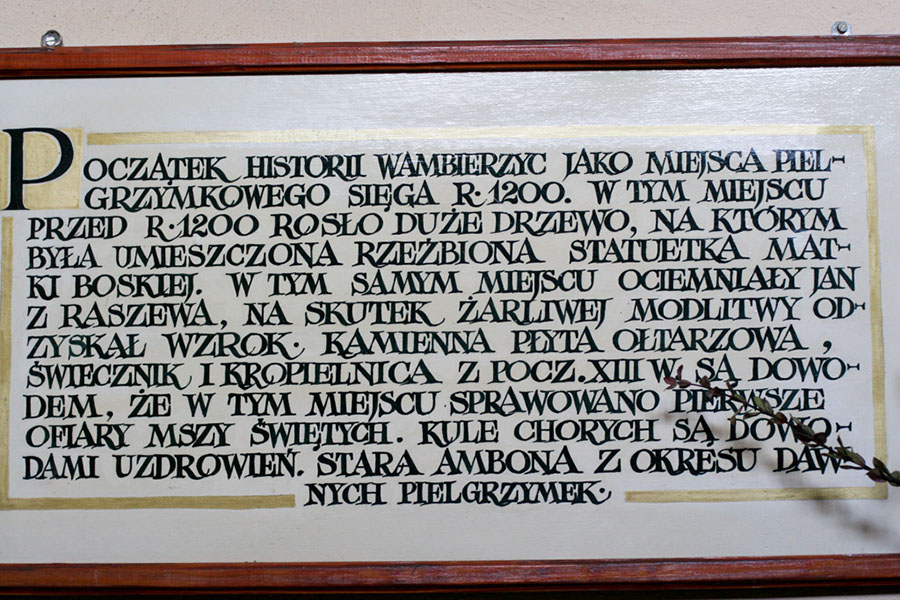 POCZĄTEK HISTORII WAMBIERZYC JAKO MIEJSCA PIEL-
GRZYMKOWEGO SIĘGA R·1200. W TYM MIEJSCU
PRZED R·1200 ROSŁO DUŻE DRZEWO, NA KTÓRYM
BYŁA UMIESZCZONA RZEŹBIONA STATUETKA MAT-
KI BOSKIEJ. W TYM SAMYM MIEJSCU OCIEMNIAŁY JAN
Z RASZEWA, NA SKUTEK ŻARLIWEJ MODLITWY OD-
ZYSKAŁ WZROK. KAMIENNA PŁYTA OŁTARZOWA,
ŚWIECZNIK I KROPIELNICA Z POCZ.XIII W. SĄ DOWO-
DEM, ŻE W TYM MIEJSCU SPRAWOWANO PIERWSZE
OFIARY MSZY ŚWIĘTYCH. KULE CHORYCH SĄ DOWO-
DAMI UZDROWIEŃ. STARA AMBONA Z OKRESU DAW-
NYCH PIELGRZYMEK.